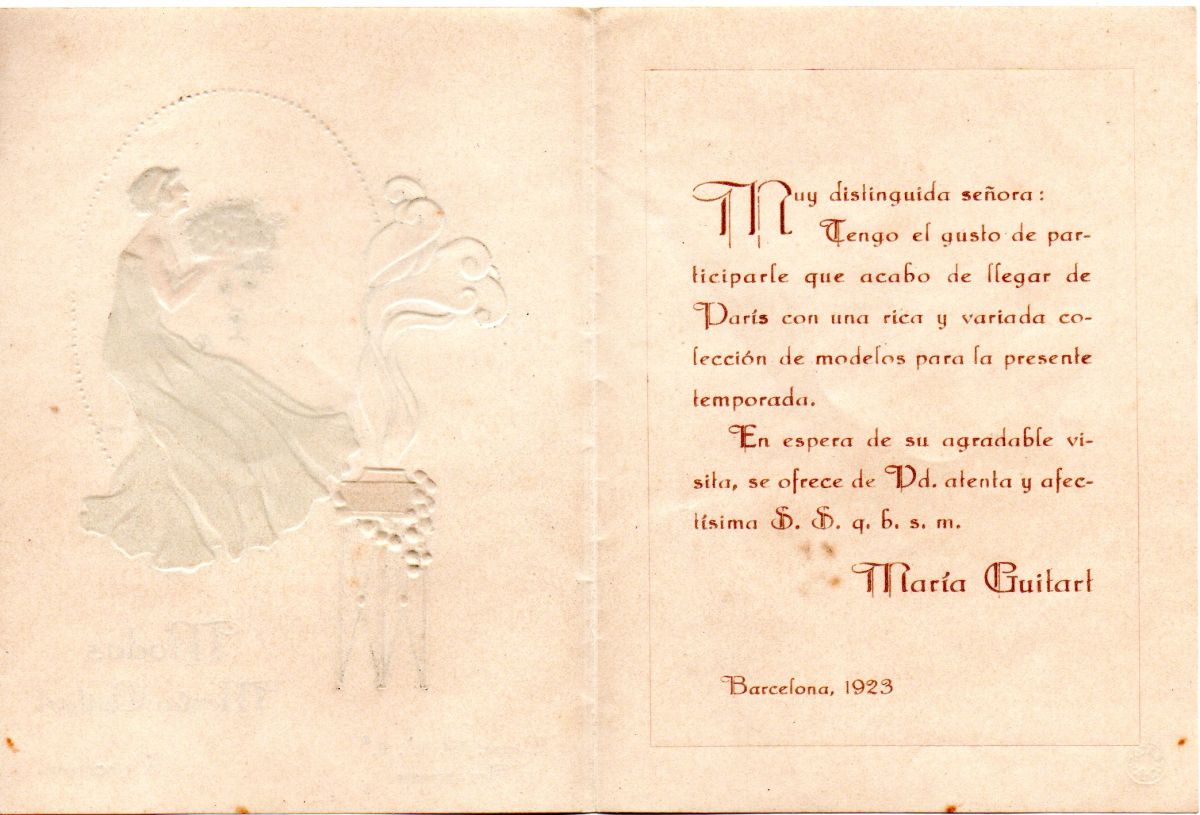 Muy distinguida señora:
Tengo el gusto de par-
ticiparle que acabo de llegar de
París con una rica y variada co-
lección de modelos para la presente
temporada.
En espera de su agradable vi-
sita, se ofrece de Vd. atenta y afec-
tísima S. S. q. b. s. m.
María Guitart
Barcelona, 1923
Modas